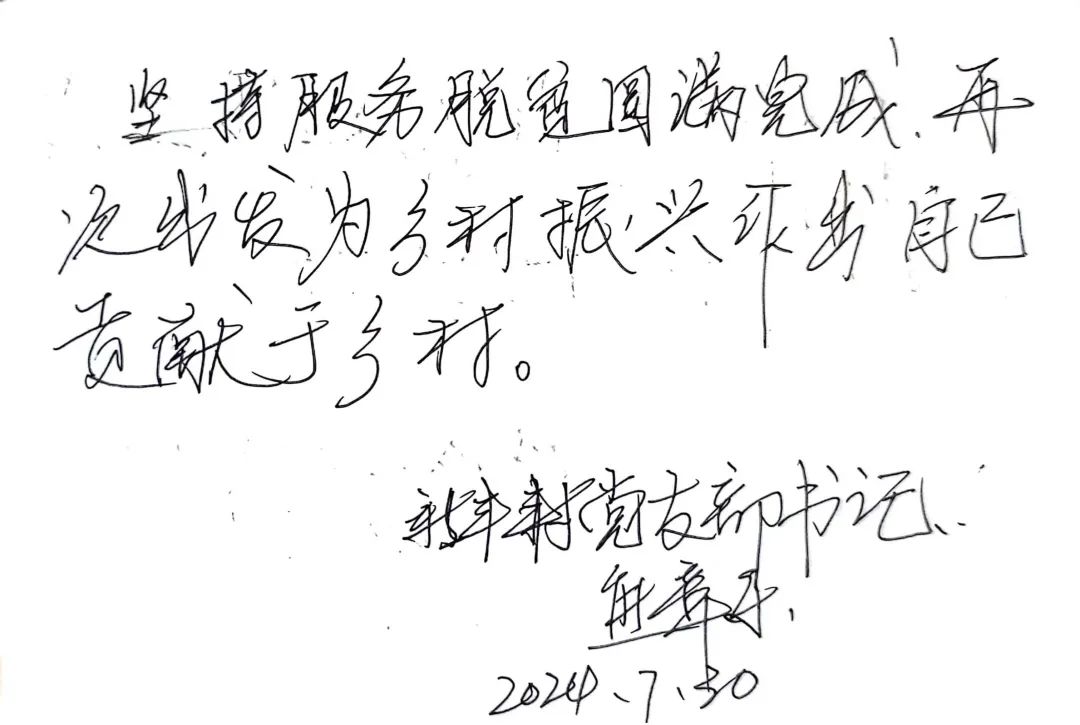 坚持服务脱贫圆满完成.再
次出发为乡村振兴作出自己
贡献于乡村。
村党支部书记
2024.7.30